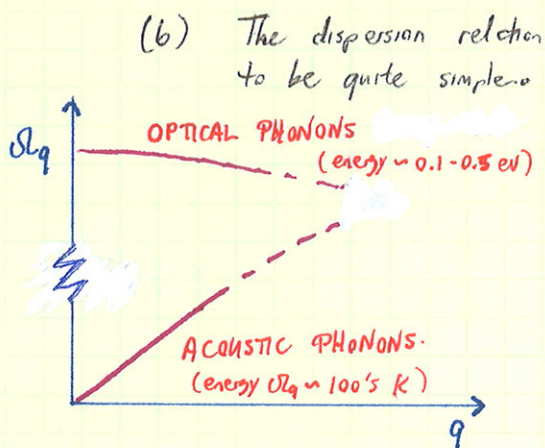 (b) The dispersion relation
to be quite simple.
Ωq
OPTICAL PHONONS
(energy ~ 0.1-0.5 eV)
ACOUSTIC PHONONS.
(energy Ωq ~ 100's K)
q